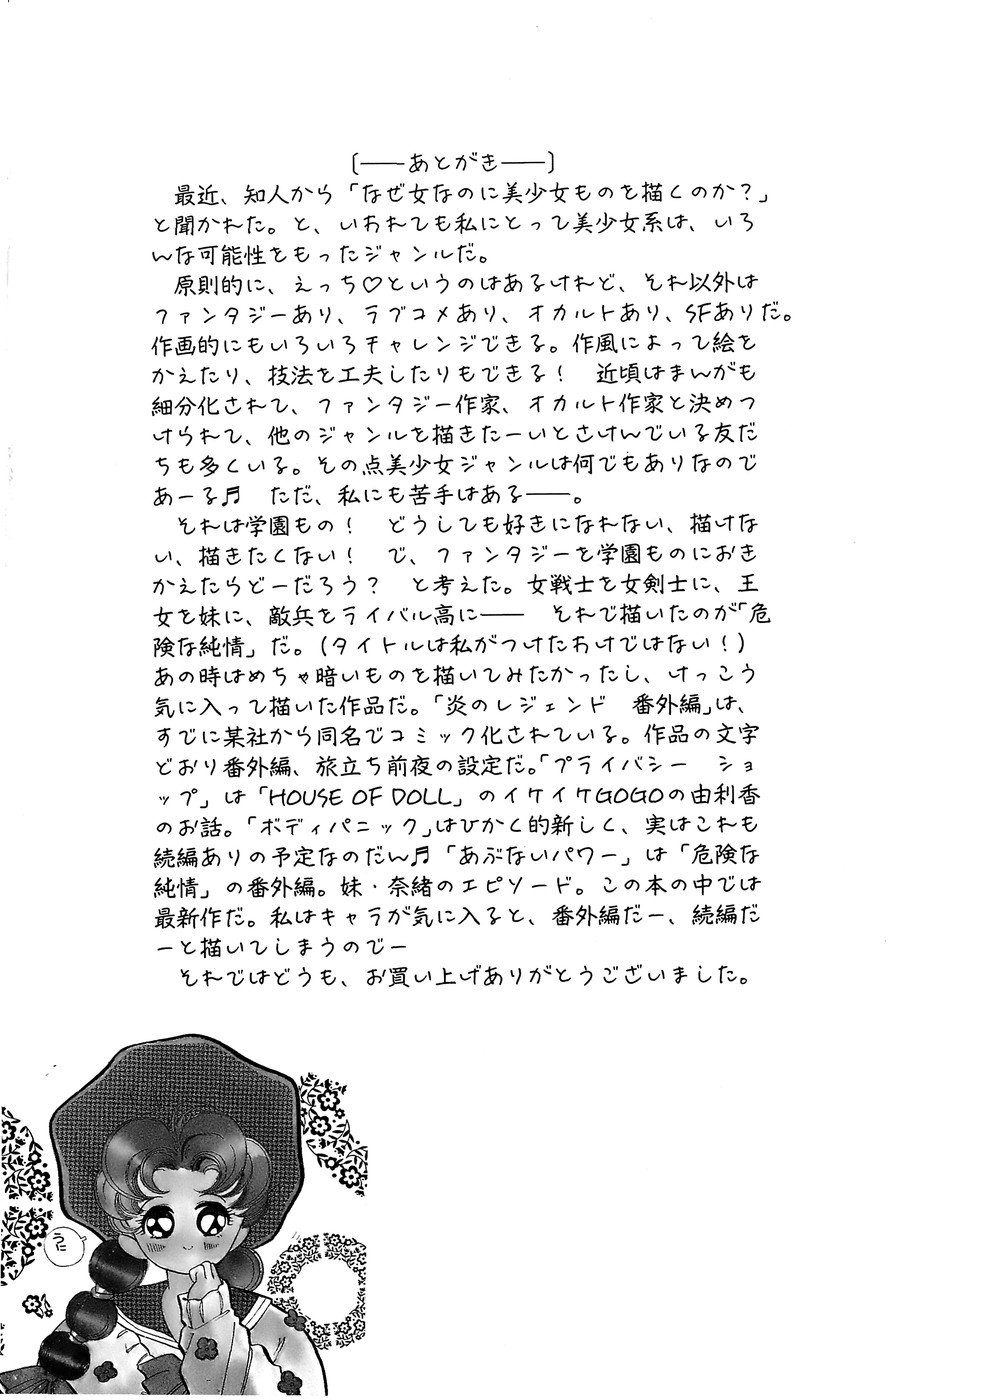 〔――あとがき――〕
　最近、知人から「なぜ女なのに美少女ものを描くのか?」
と聞かれた。と、いわれても私にとって美少女系は、いろ
んな可能性をもったジャンルだ。
　原則的に、えっち♡というのはあるけれど、それ以外は
ファンタジーあり、ラブコメあり、オカルトあり、SFありだ。
作画的にもいろいろチャレンジできる。作風によって絵を
かえたり、技法を工夫したりもできる!　近頃はまんがも
細分化されて、ファンタジー作家、オカルト作家と決めつ
けられて、他のジャンルを描きたーいとさけんでいる友だ
ちも多くいる。その点美少女ジャンルは何でもありなので
あーる♬　ただ、私にも苦手はある――。
　それは学園もの!　どうしても好きになれない、描けな
い、描きたくない!　で、ファンタジーを学園ものにおき
かえたらどーだろう?　と考えた。女戦士を女剣士に、王
女を妹に、敵兵をライバル高に――　それで描いたのが「危
険な純情」だ。(タイトルは私がつけたわけではない!)
あの時はめちゃ暗いものを描いてみたかったし、けっこう
気に入って描いた作品だ。「炎のレジェンド　番外編」は、
すでに某社から同名でコミック化されている。作品の文字
どおり番外編、旅立ち前夜の設定だ。「プライバシー　ショ
ップ」は「HOUSE OF DOLL」のイケイケGOGOの由利香
のお話。「ボディパニック」はひかく的新しく、実はこれも
続編ありの予定なのだん♬「あぶないパワー」は「危険な
純情」の番外編。妹・奈緒のエピソード。この本の中では
最新作だ。私はキャラが気に入ると、番外編だー、続編だ
ーと描いてしまうのでー
　それではどうも、お買い上げありがとうございました。
うに